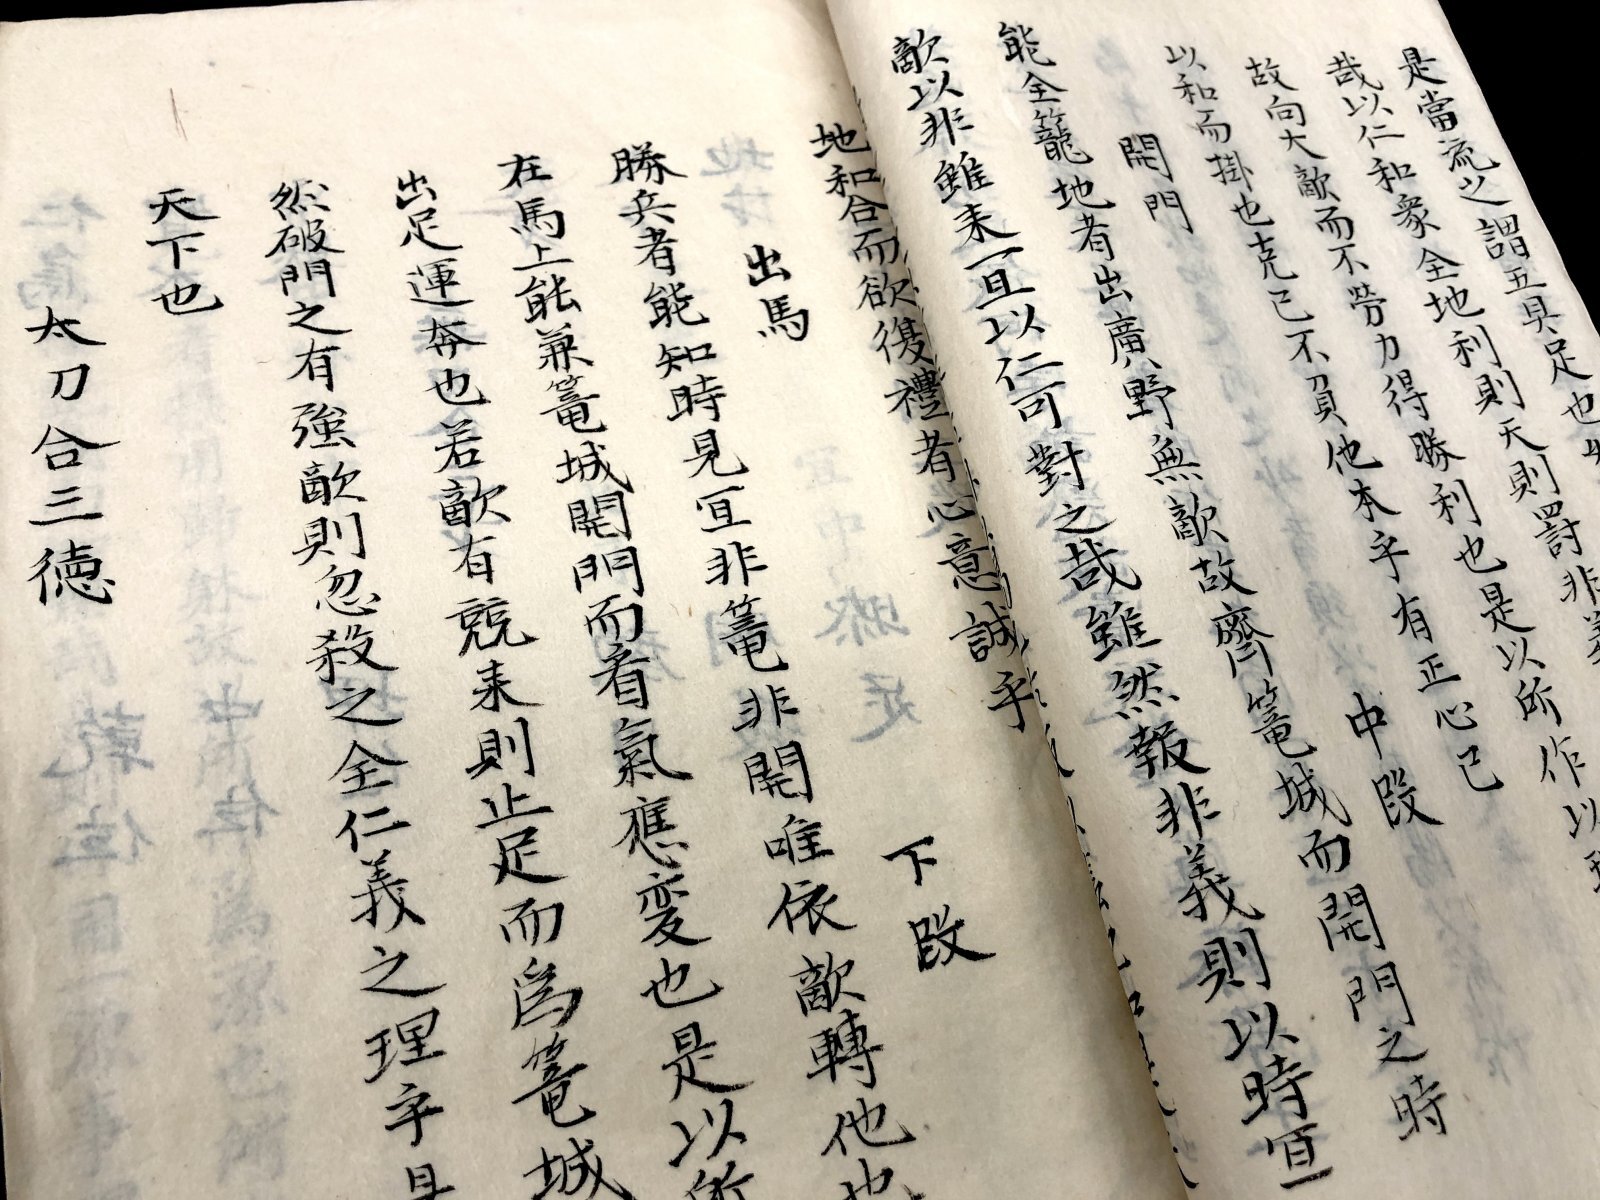 是當流之謂五具足也
哉以仁和衆全地利則天則罰非義
故向大敵而不勞力得勝利也是以所作以
以和而掛也克己不負他本乎有正心已
開門 中段
能全籠地者出廣野無敵故齊篭城而開門之時
敵以非雖来宜以仁可對之哉雖然報非義則以時宜
地和合而欲復禮者心意誠乎
出馬 下段
勝兵者能知時見宜非篭非開唯依敵轉他也
在馬上能兼篭城開門而看氣應変也是以所
出足運奔也若敵有競来則止足而為篭城
然破門之有強敵則忽殺之全仁義之理乎
天下也
太刀合三徳